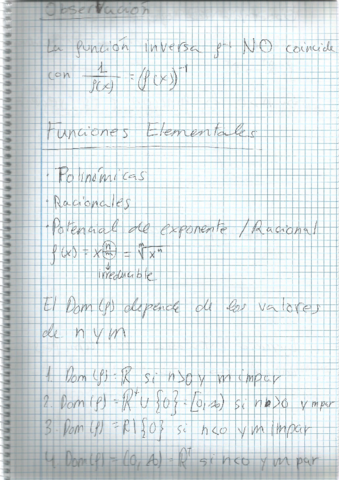 Observación
La función inversa f⁻¹ NO coincide
con 1/f(x) = (f(x))⁻¹
Funciones Elementales
· Polinómicas
· Racionales
· Potencial de exponente / Racional
f(x) = x^(n/m) = ᵐ√xⁿ
irreducible
El Dom(f) depende de los valores
de n y m
1. Dom(f) = ℝ si n>0 y m impar
2. Dom(f) = ℝ⁺ ∪ {0} = [0,∞) si n>0 y m par
3. Dom(f) = ℝ\{0} si n<0 y m impar
4. Dom(f) = (0,∞) = ℝ⁺ si n<0 y m par